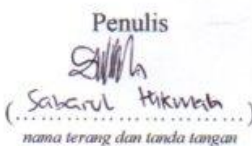 Penulis
(Sabarul Hikmah)
nama terang dan tanda tangan